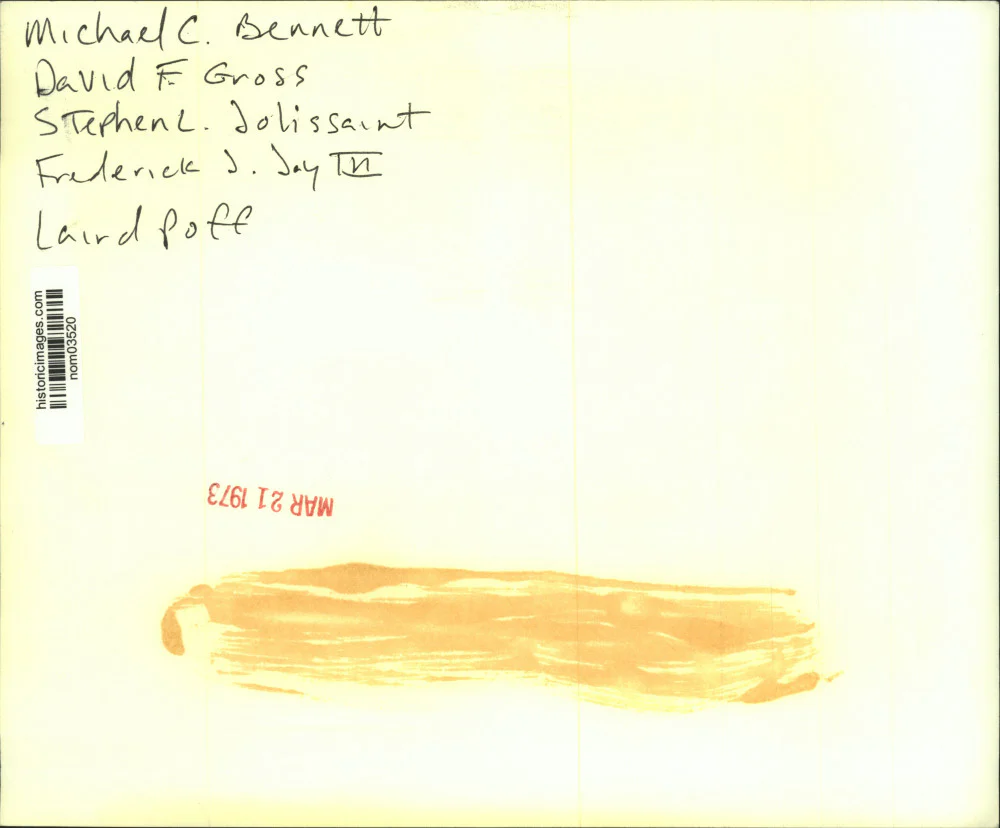 Michael C. Bennett
David F. Gross
Stephen L. Jolissaint
Frederick J. Jay IV
Laird Poff
historicimages.com
nom03520
MAR 21 1973